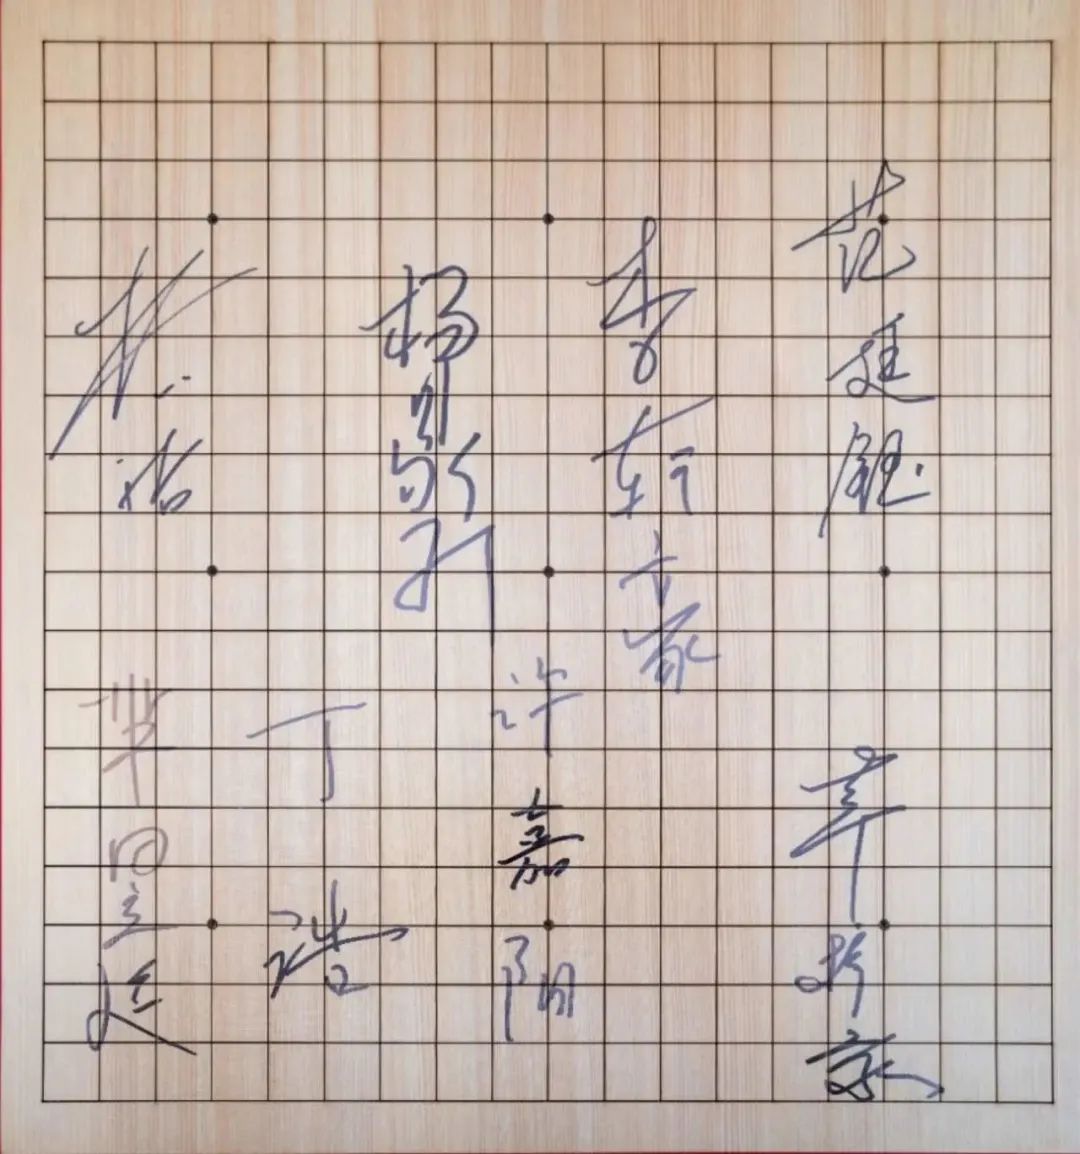 范廷钰
李轩豪
杨鼎新
柯洁
辜梓豪
许嘉阳
丁浩
芈昱廷